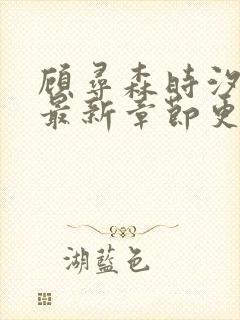 顾寻森时汐
最新章节更
湖蓝色